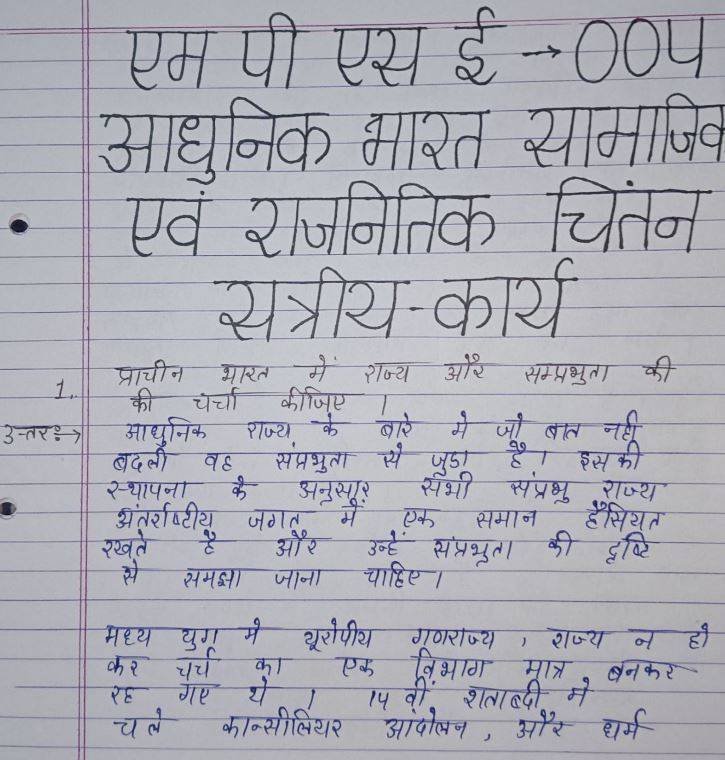 एम पी एस ई → 004
आधुनिक भारत सामाजिक
एवं राजनितिक चिंतन
सत्रीय-कार्य
1. प्राचीन भारत में राज्य और सम्प्रभुता की
की चर्चा कीजिए ।
उत्तरः→ आधुनिक राज्य के बारे मे जो बात नही
बदली वह संप्रभुता से जुडा है । इस की
स्थापना के अनुसार सभी संप्रभु राज्य
अंतर्राष्टीय जगत में एक समान हैसियत
रखते है और उन्हे संप्रभुता की दृष्टि
से समझा जाना चाहिए ।
मध्य युग मे यूरोपीय गणराज्य , राज्य न हो
कर चर्च का एक विभाग मात्र बनकर
रह गए थे । 14 वीं शताब्दी मे
चले कान्सीलियर आंदोलन , और धर्म